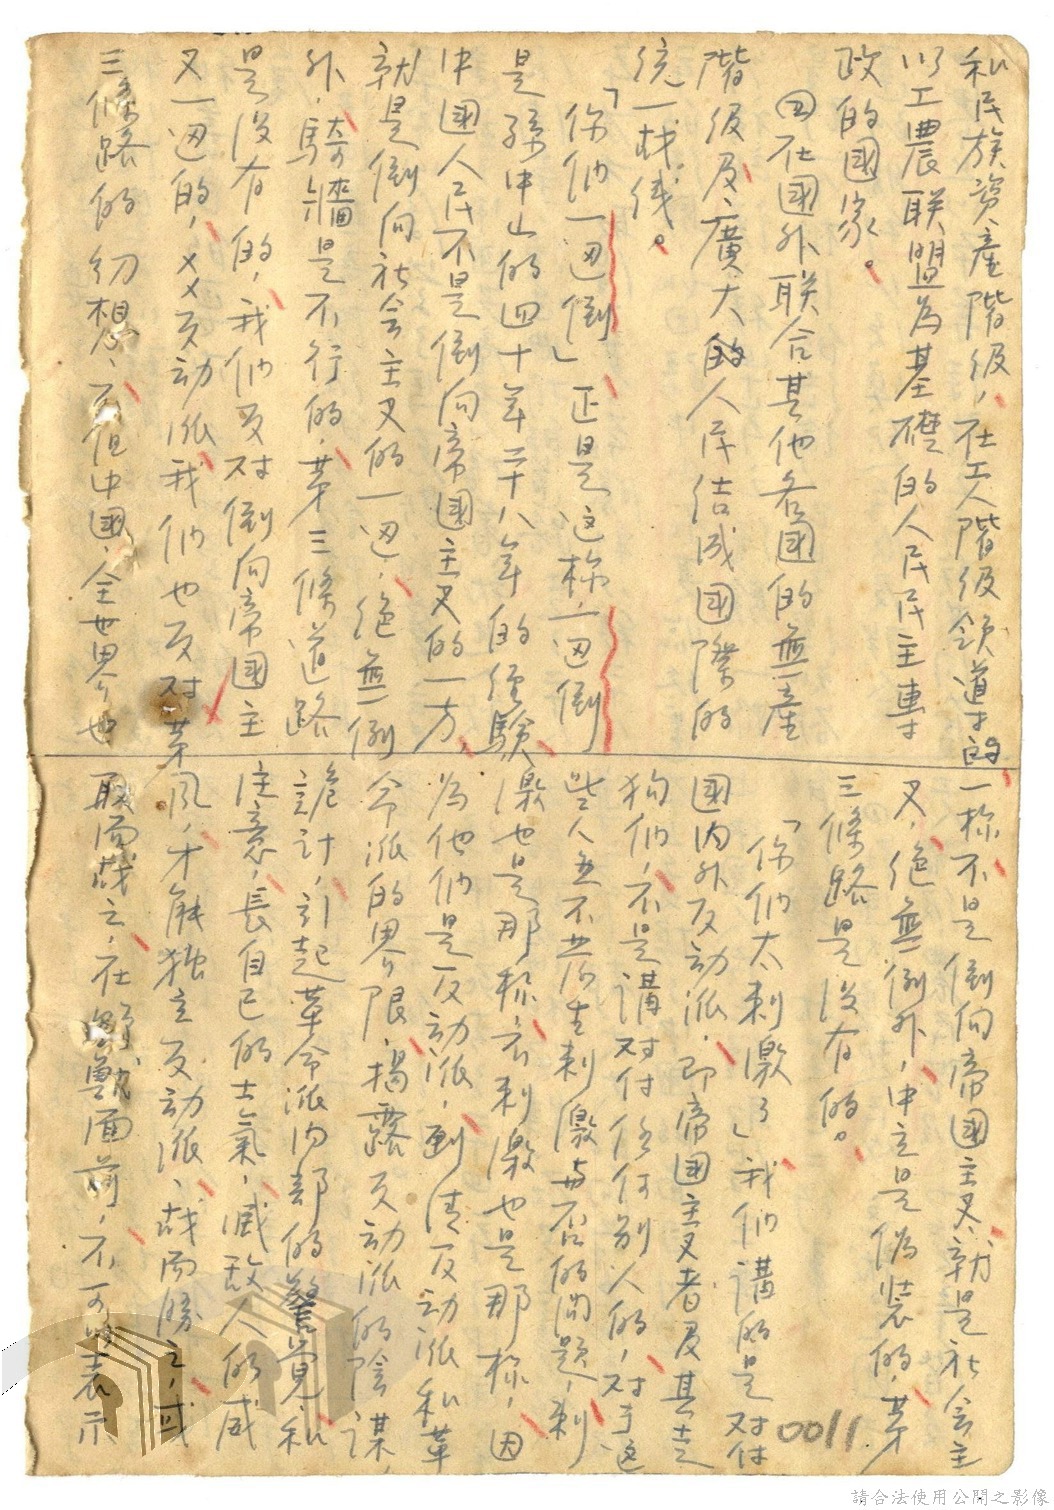 和民族資產階級，在工人階級领導才的
以工農联盟為基礎的人民民主專
政的國家。
四在國外联合其他各國的無產
階级及廣大的人民结成國際的
统一战线。
「你们一边倒」正是这樣，一边倒
是孫中山的四十年二十八年的经驗
中國人民不是倒向帝國主义的一方，
就是倒向社会主义的一边，绝無例
外，騎墙是不行的，苐三條道路
是没有的，我们反对倒向帝國主
义一边的，××反动派我们也反对苐
三條路的幻想，不但中國，全世界也
一樣不是倒向帝國主义，就是社会主
义，绝無例外，中立是偽装的，苐
三條路是没有的。
「你们太刺激了」我们講的是对付
國内外反动派，即帝國主义者及其走
狗们，不是講对付任何别人的，对于这
些人並不發生刺激與否的问题，刺
激也是那樣，不刺激也是那樣，因
為他们是反动派，劃清反动派和革
命派的界限，揭露反动派的陰謀，
詭计，引起革命派内部的警觉和
注意，長自己的士氣，滅敌人的威
风，才能独立反动派，战而勝之，或
取而战之，在野獸面前，不可以表示
0011
請合法使用公開之影像